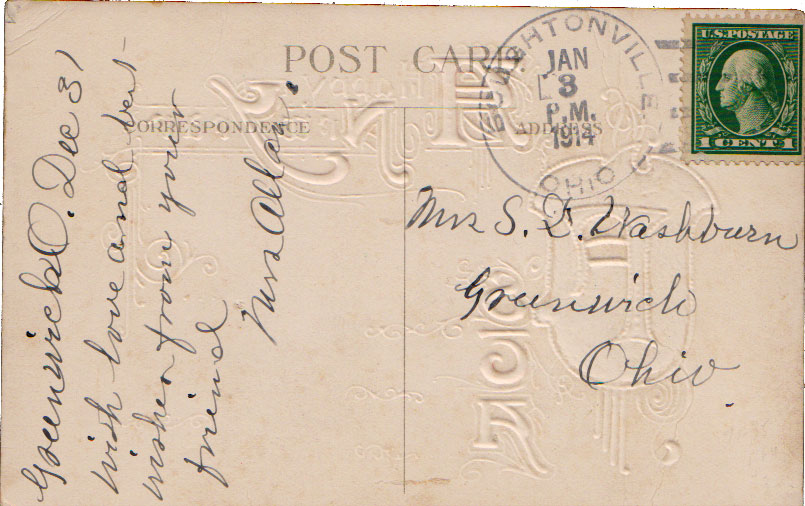 POST CARD
CORRESPONDENCE
ADDRESS
BOUGHTONVILLE
JAN
3
P.M.
1914
OHIO
U.S. POSTAGE
1 CENT 1
Greenwich O. Dec 31
with love and best
wishes from your
friend
Mrs Allan.
Mrs S. D. Washburn
Greenwich
Ohio